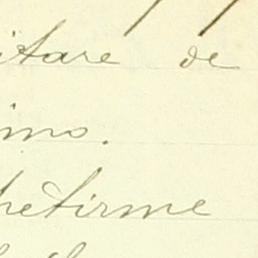 itare de
imo.
hetirme